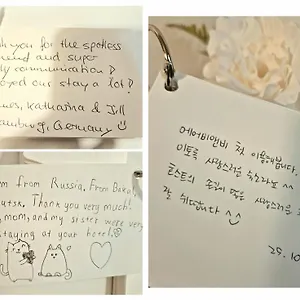 you for the spotless
and super
communication!
oyed our stay a lot!
Katharina & Jill
Hamburg, Germany
from Russia, From
utsk, Thank you very much!
mom, and my sister were very
staying at your hotel
에어비앤비 첫 이용입니다.
이토록 사랑스러운 숙소라뇨 ^^
호스트의
잘 쉬었습니다 ^^
25.10